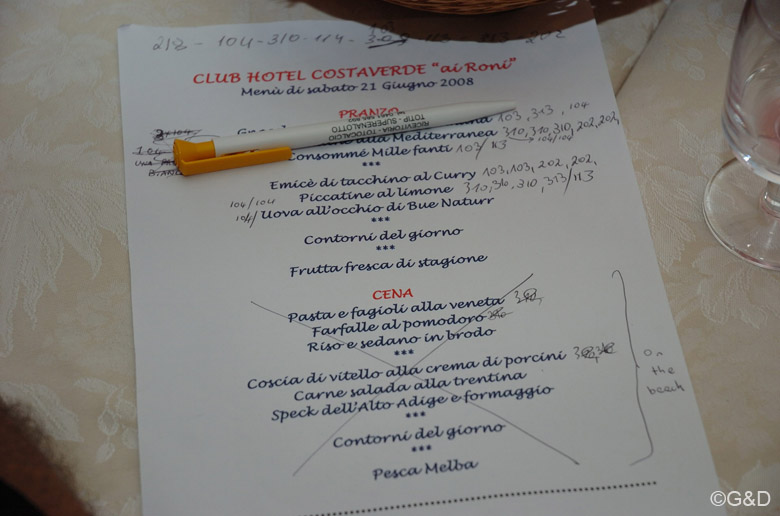 218 - 104 - 310 - 114 -
CLUB HOTEL COSTAVERDE "ai Roni"
Menù di sabato 21 Giugno 2008
PRANZO
103, 313, 104
alla Mediterranea 310, 310, 310, 202, 202,
Consommé Mille fanti 103/113 104/104
RICEVITORIA - TOTOCALCIO
TOTIP - SUPERENALOTTO
104
UNA
***
Emicè di tacchino al Curry 103, 103, 202, 202,
Piccatine al limone 310, 310, 310, 313/113
104/104
104/ Uova all'occhio di Bue Naturr
***
Contorni del giorno
***
Frutta fresca di stagione
CENA
Pasta e fagioli alla veneta
Farfalle al pomodoro
Riso e sedano in brodo
***
Coscia di vitello alla crema di porcini
Carne salada alla trentina
Speck dell'Alto Adige e formaggio
***
Contorni del giorno
***
Pesca Melba
On
the
beach
©G&D